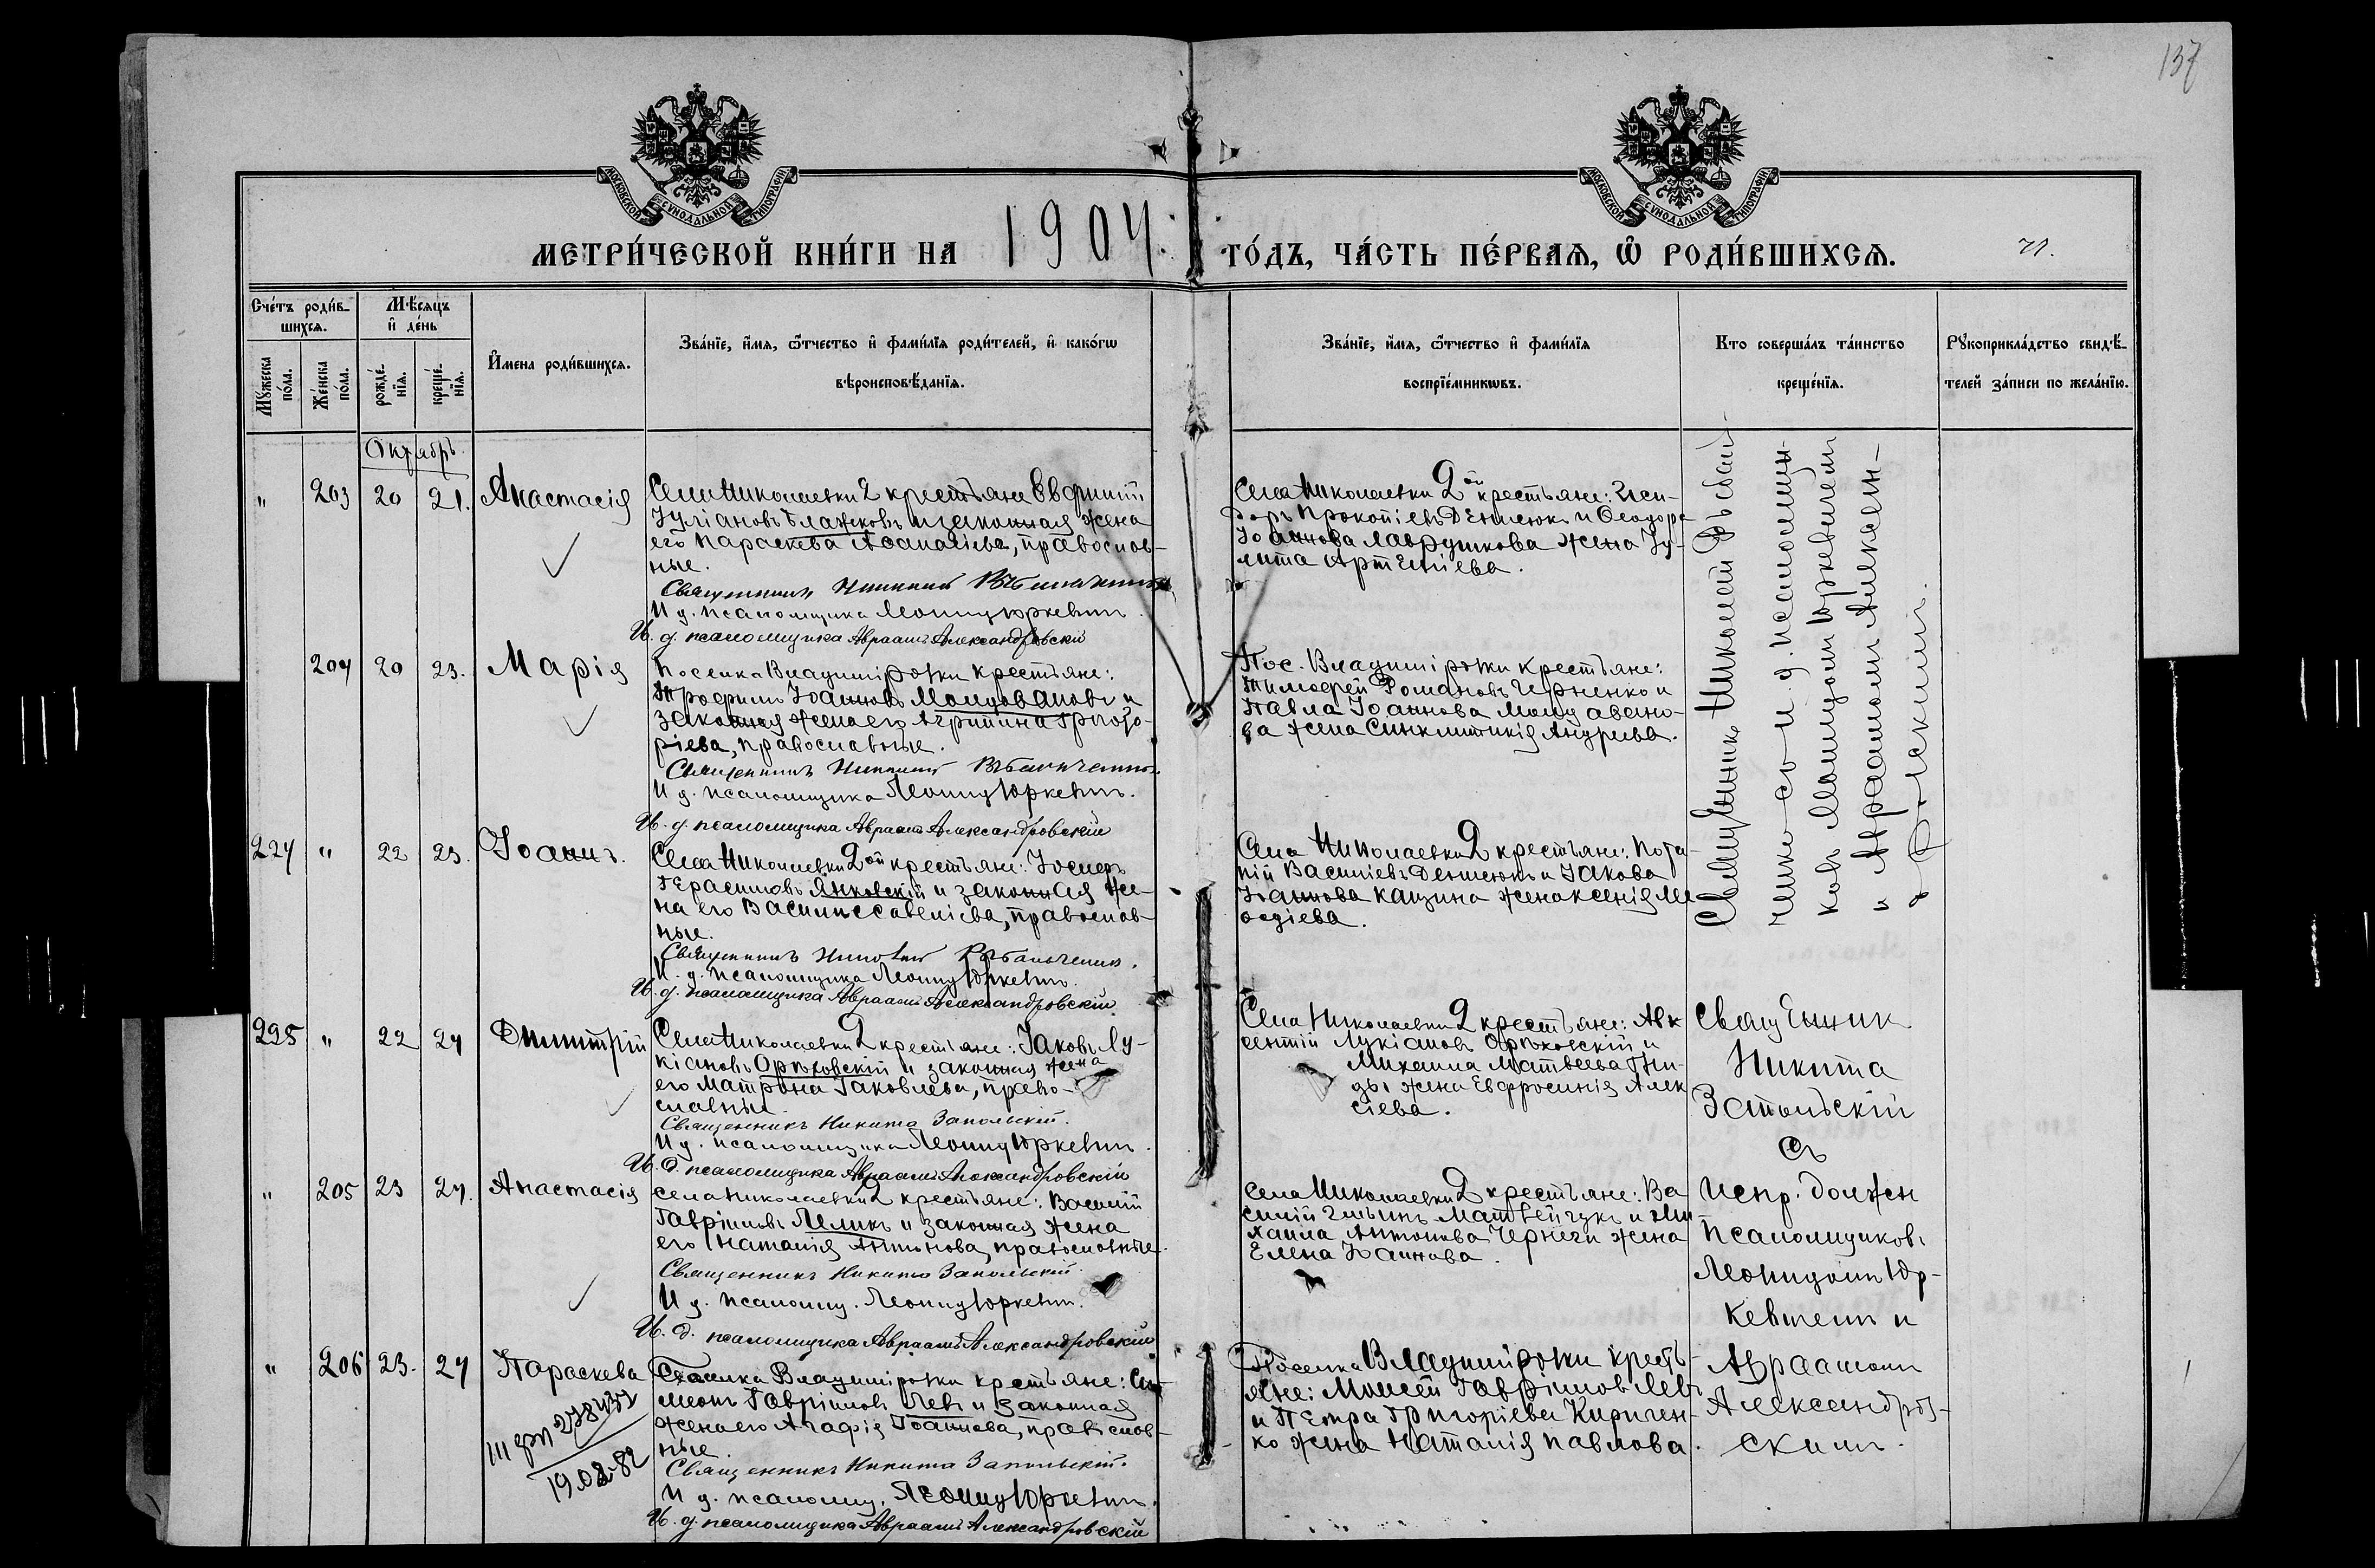 137
МОСКОВСКОЙ СУНОДАЛЬНОЙ ТИПОГРАФІИ
МОСКОВСКОЙ СУНОДАЛЬНОЙ ТИПОГРАФІИ
МЕТРИ́ЧЕСКОЙ КНИ́ГИ НА 1904. ГО́ДЪ, ЧА́СТЬ ПЕ́РВАЯ, Ѿ РОДИ́ВШИХСЯ.
Сче́тъ роди́в-
шихся.
Мѣ́сяцъ
и҆ де́нь
Мꙋ́жеска по́ла.
Же́нска по́ла.
рожде́-
нїя.
креще́-
нїя.
И҆мена роди́вшихся.
Зва́нїе, и҆́мя, ѻ҆́тчество и҆ фами́лїя роди́телей, и҆ како́гѡ
вѣроисповѣ́данїя.
Зва́нїе, и҆́мя, ѻ҆́тчество и҆ фами́лїя
воспрїе́мникѡвъ.
Кто соверша́лъ та́инство
креще́нїя.
Рꙋкоприкла́дство свидѣ́-
телей за́писи по жела́нїю.
Октябрь
" 203 20 21. Анастасія
Села Николаевки 2 крестьяне Евфимій
Іуліановъ Блажковъ и законная жена
его Параскева Аѳанасіева, православ-
ные.
Священникъ Николай
И д. псаломщика Леонид Юркевич
И. д. псаломщика Авраамъ Александровскій
Села Николаевки 2ой крестьяне: Иси-
доръ Прокопіевъ Денисюкъ и Ѳеодора
Іоаннова Лаврушкова жена Іу-
лита Артеміева.
204 20 23. Марія
Поселка Владиміровки крестьяне:
Трофимъ Іоанновъ Молдовановъ и
законная жена его Агрипина Григо-
ріева, православные.
Священникъ Николай
И д. псаломщика Леонид Юркевич.
И. д. псаломщика Авраамъ Александровскій
Пос. Владиміровки крестьяне:
Тимоѳей Романовъ Черненко и
Павла Іоаннова Молдавано-
ва жена Синклитикія Андреева.
224 " 22 23. Іоаннъ.
Села Николаевки 2ой крестьяне: Іосифъ
Герасимовъ Янковскій и законная же-
на его Василисса Савеліева, православ-
ные.
Священникъ Николай
И. д. псаломщика Леонид Юркевич.
И. д. псаломщика Авраамъ Александровскій.
Села Николаевки 2 крестьяне: Пота-
пій Василіевъ Денисюкъ и Іакова
Іоаннова Кацина жена Ксенія Ме
ѳодіева.
Священник Николай
ченко съ и. д. псаломщи-
ковъ Леонидомъ Юркевичем
и Авраамомъ Александ-
ровскимъ.
225 " 22 24 Димитрій
Села Николаевки 2 крестьяне: Іаковъ Лу-
кіановъ Орѣховскій и законная жена
его Матрона Іаковлева, право-
славные.
Священникъ Никита Запольскій.
И д. псаломщика Леонид Юркевич.
И. д. псаломщика Авраамъ Александровскій
Села Николаевки 2 крестьяне: Авк
сентій Лукіановъ Орѣховскій и
Михаила Матвеева Гни-
ды жена Евфросинія Алек
сіева.
Священник
Никита
Запольскій
съ
Испр. должн
псаломщиковъ
Леонидомъ Юр-
кевичем и
Авраамомъ
Александров-
скимъ.
" 205 23 24. Анастасія
села Николаевки 2 крестьяне: Василій
Гавріиловъ Леликъ и законная жена
его Наталія Антонова, православные.
Священникъ Никита Запольскій.
И д. псаломщ. Леонид Юркевич.
И. д. псаломщика Авраамъ Александровскій
Села Николаевки 2 крестьяне: Ва
силій Ильинъ Матвейчукъ и Ми-
хаила Антонова Чернеги жена
Елена Іоаннова.
" 206 23. 24 Параскева
19.02-82
Поселка Владиміровки крестьяне: Си
меонъ Гавріиловъ Левъ и законная
жена его Агафія Іоаннова, православ-
ные.
Священникъ Никита Запольскій.
И д. псаломщ. Леонид Юркевич.
И. д. псаломщика Авраамъ Александровскій
Поселка Владиміровки кресть-
яне: Моисей Гавріиловъ Левъ
и Петра Григоріева Киричен-
ко жена Наталія Павлова.